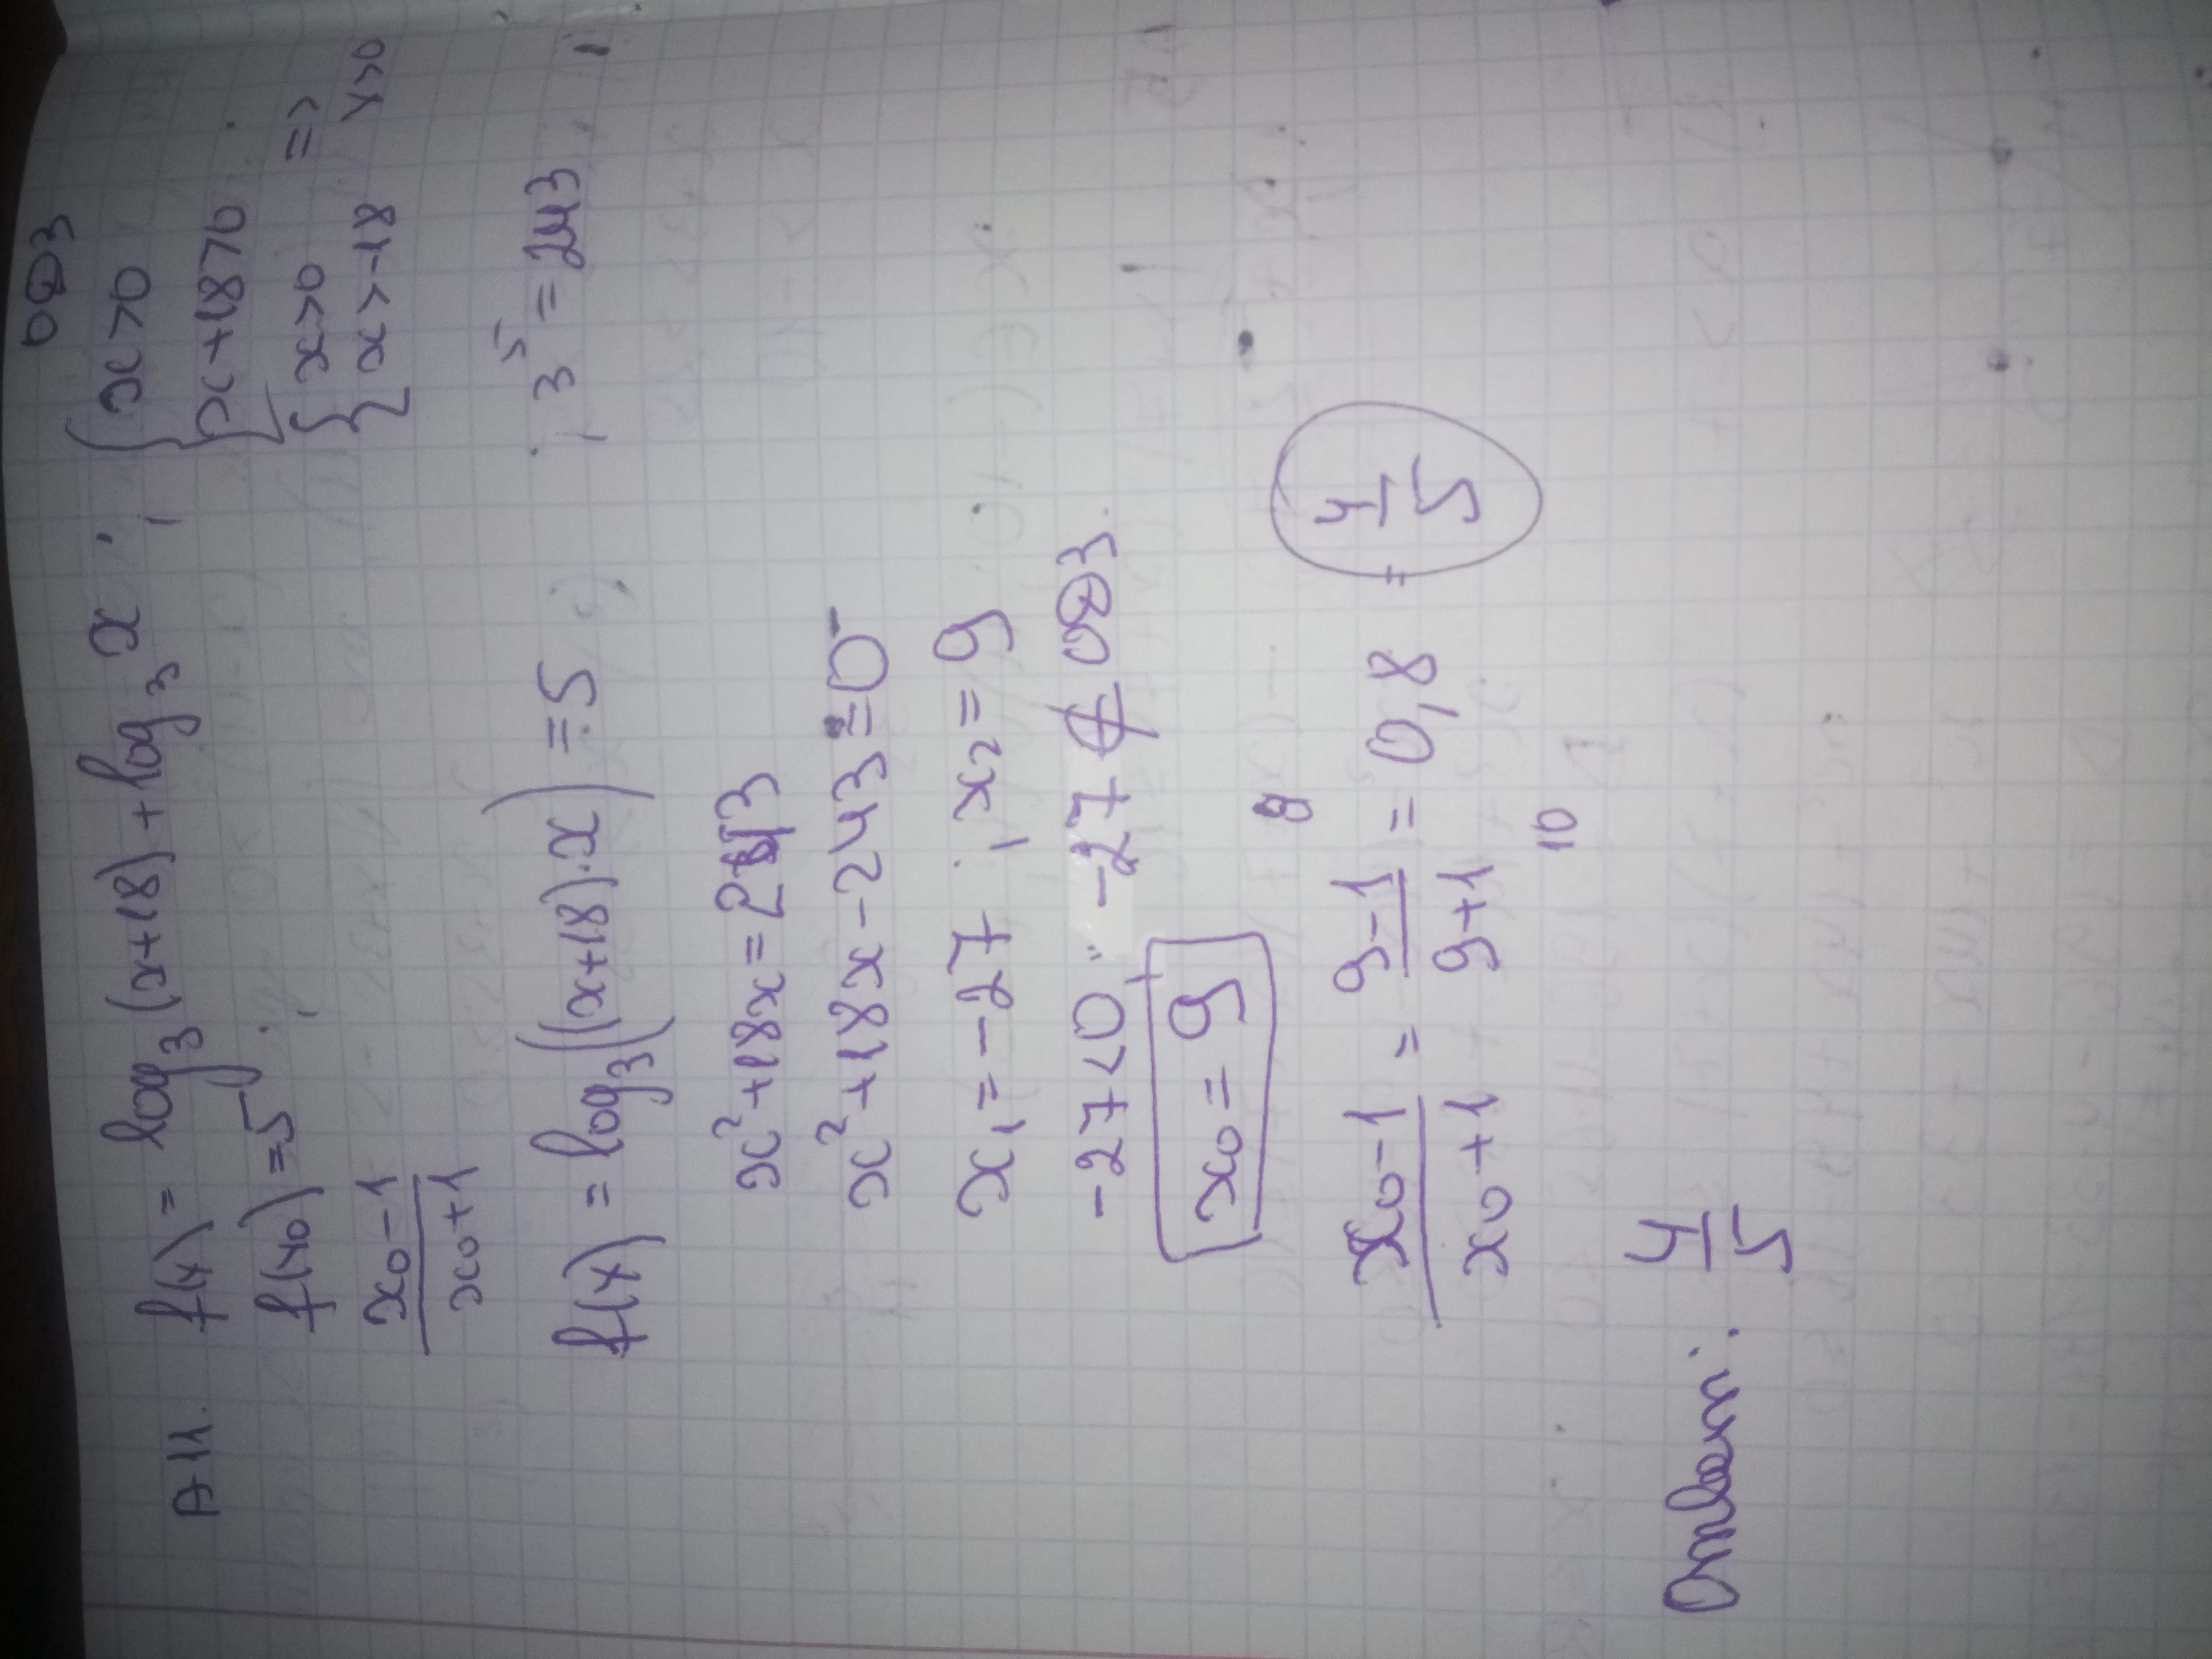 ОДЗ
А11. f(x) = log₃(x+18) + log₃x ; { x>0
f(x₀) = 5 ; x+18>0
x₀-1 / x₀+1 { x>0 =>
x>-18 x>0
f(x) = log₃((x+18)·x) = 5 ; 3⁵ = 243
x²+18x = 243
x²+18x-243 = 0
x₁ = -27 ; x₂ = 9
-27<0 " -27 ∉ ОДЗ
x₀ = 9
8
x₀-1 / x₀+1 = 9-1 / 9+1 = 0,8 = 4/5
10
Ответ: 4/5